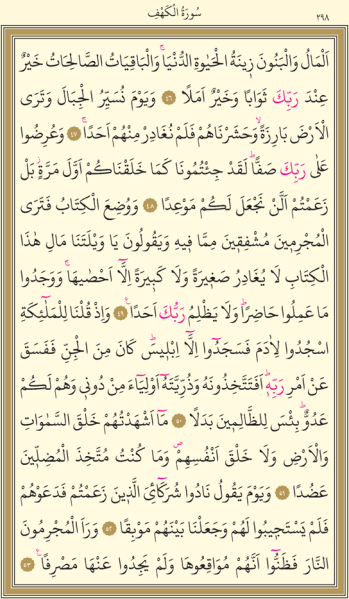 سُورَةُ الْكَهْفِ ٢٩٨
اَلْمَالُ وَالْبَنُونَ زِينَةُ الْحَيٰوةِ الدُّنْيَاۚ وَالْبَاقِيَاتُ الصَّالِحَاتُ خَيْرٌ
عِنْدَ رَبِّكَ ثَوَابًا وَخَيْرٌ اَمَلًا ﴿٤٦﴾ وَيَوْمَ نُسَيِّرُ الْجِبَالَ وَتَرَى
الْاَرْضَ بَارِزَةًۙ وَحَشَرْنَاهُمْ فَلَمْ نُغَادِرْ مِنْهُمْ اَحَدًاۚ ﴿٤٧﴾ وَعُرِضُوا
عَلٰى رَبِّكَ صَفًّاۜ لَقَدْ جِئْتُمُونَا كَمَا خَلَقْنَاكُمْ اَوَّلَ مَرَّةٍۘ بَلْ
زَعَمْتُمْ اَلَّنْ نَجْعَلَ لَكُمْ مَوْعِدًا ﴿٤٨﴾ وَوُضِعَ الْكِتَابُ فَتَرَى
الْمُجْرِمِينَ مُشْفِقِينَ مِمَّا فِيهِ وَيَقُولُونَ يَا وَيْلَتَنَا مَالِ هٰذَا
الْكِتَابِ لَا يُغَادِرُ صَغِيرَةً وَلَا كَبِيرَةً اِلَّٓا اَحْصٰيهَاۚ وَوَجَدُوا
مَا عَمِلُوا حَاضِرًاۜ وَلَا يَظْلِمُ رَبُّكَ اَحَدًا۟ ﴿٤٩﴾ وَاِذْ قُلْنَا لِلْمَلٰٓئِكَةِ
اسْجُدُوا لِاٰدَمَ فَسَجَدُٓوا اِلَّٓا اِبْلِيسَۜ كَانَ مِنَ الْجِنِّ فَفَسَقَ
عَنْ اَمْرِ رَبِّهِۜ اَفَتَتَّخِذُونَهُ وَذُرِّيَّتَهُٓ اَوْلِيَٓاءَ مِنْ دُونِي وَهُمْ لَكُمْ
عَدُوٌّۜ بِئْسَ لِلظَّالِمِينَ بَدَلًا ﴿٥٠﴾ مَٓا اَشْهَدْتُهُمْ خَلْقَ السَّمٰوَاتِ
وَالْاَرْضِ وَلَا خَلْقَ اَنْفُسِهِمْۖ وَمَا كُنْتُ مُتَّخِذَ الْمُضِلِّينَ
عَضُدًا ﴿٥١﴾ وَيَوْمَ يَقُولُ نَادُوا شُرَكَٓائِيَ الَّذِينَ زَعَمْتُمْ فَدَعَوْهُمْ
فَلَمْ يَسْتَجِيبُوا لَهُمْ وَجَعَلْنَا بَيْنَهُمْ مَوْبِقًا ﴿٥٢﴾ وَرَاَ الْمُجْرِمُونَ
النَّارَ فَظَنُّٓوا اَنَّهُمْ مُوَاقِعُوهَا وَلَمْ يَجِدُوا عَنْهَا مَصْرِفًا۟ ﴿٥٣﴾